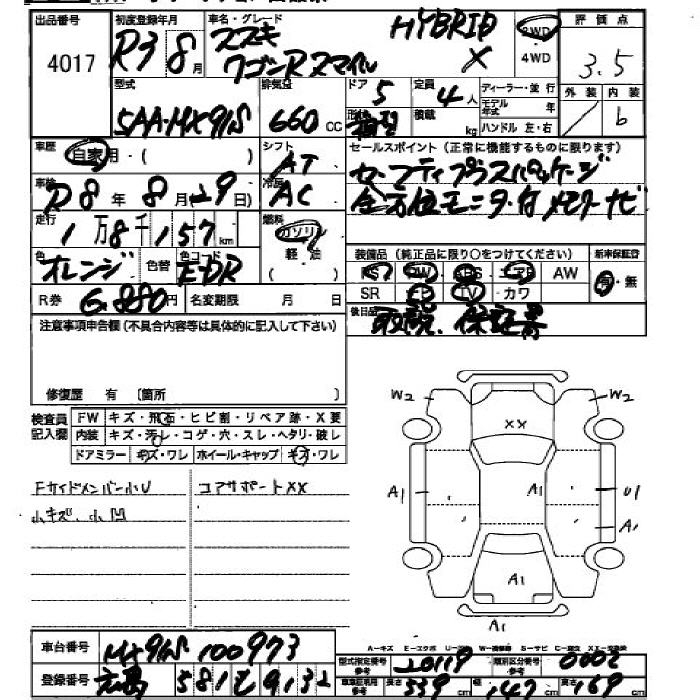 出品番号 4017
初度登録年月 R3 8月
車名・グレード スズキ ワゴンRスマイル HYBRID X
2WD・4WD
評価点 3.5
外装 / 内装 b
型式 5AA-MX91S
排気量 660cc
ドア 5
定員 4人
形状
積載 kg
ディーラー・並行
モデル年式 年
ハンドル 左・右
車歴 自家用・( )
シフト AT
セールスポイント(正常に機能するものに限ります)
セーフティプラスパッケージ
全方位モニタ付メモリーナビ
車検 R8年8月(29日)
冷房 AC
走行 1万8千157km
燃料 ガソリン 軽油 ( )
色 オレンジ 色替 色コード EDR
装備品(純正品に限り○をつけてください)
PS・PW・ABS・エアB AW
SR カワ TV
新車保証書 有・無
R券 6.880円 名変期限 月 日
後日品 取説、保証書
注意事項申告欄(不具合内容等は具体的に記入して下さい)
修復歴 有 〔箇所 〕
検査員記入欄
FW キズ・飛石・ヒビ割・リペア跡・X要
内装 キズ・汚レ・コゲ・穴・スレ・ヘタリ・破レ
ドアミラー キズ・ワレ ホイール・キャップ キズ・ワレ
Fサイドメンバー小U コアサポートXX
小キズ、小凹
W2 W2
XX
A1 A1 U1
A1
A1
A1
車台番号 MX91S 100973
登録番号 広島 581 9132
型式指定番号 20119 類別区分番号 0002
車両寸法参考 長さ 339cm 幅 147cm 高さ 169cm